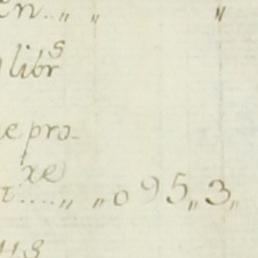 en..,, ,, ,,
libr^s
e pro-
xe
....,, ,,095,,3,,